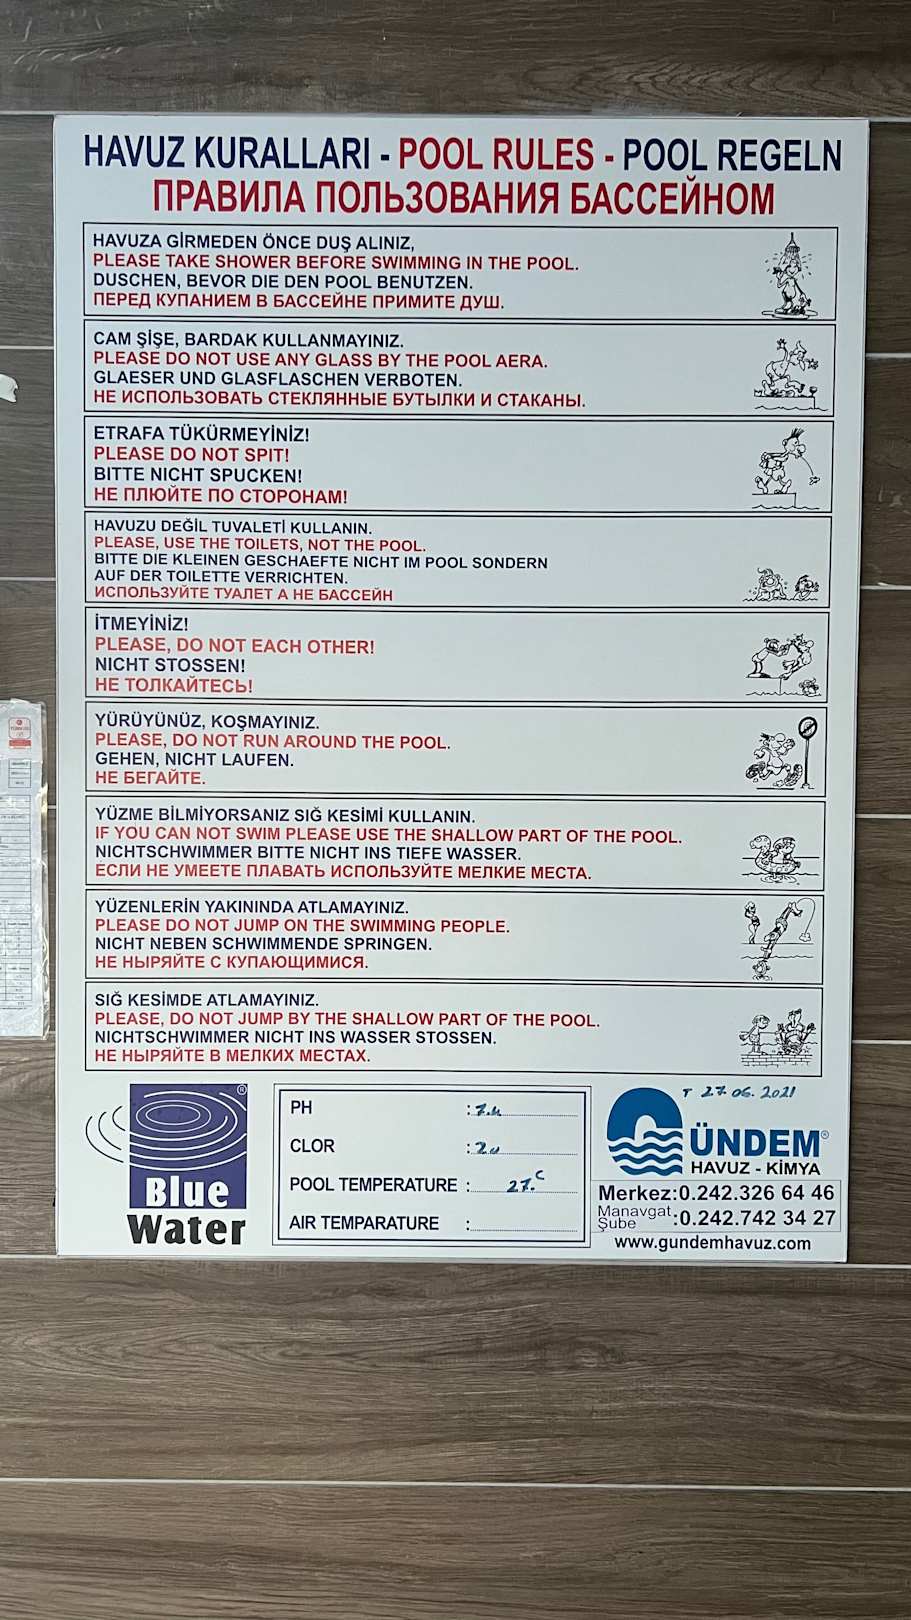 HAVUZ KURALLARI - POOL RULES - POOL REGELN
ПРАВИЛА ПОЛЬЗОВАНИЯ БАССЕЙНОМ
HAVUZA GİRMEDEN ÖNCE DUŞ ALINIZ,
PLEASE TAKE SHOWER BEFORE SWIMMING IN THE POOL.
DUSCHEN, BEVOR DIE DEN POOL BENUTZEN.
ПЕРЕД КУПАНИЕМ В БАССЕЙНЕ ПРИМИТЕ ДУШ.
CAM ŞİŞE, BARDAK KULLANMAYINIZ.
PLEASE DO NOT USE ANY GLASS BY THE POOL AERA.
GLAESER UND GLASFLASCHEN VERBOTEN.
НЕ ИСПОЛЬЗОВАТЬ СТЕКЛЯННЫЕ БУТЫЛКИ И СТАКАНЫ.
ETRAFA TÜKÜRMEYİNİZ!
PLEASE DO NOT SPIT!
BITTE NICHT SPUCKEN!
НЕ ПЛЮЙТЕ ПО СТОРОНАМ!
HAVUZU DEĞİL TUVALETİ KULLANIN.
PLEASE, USE THE TOILETS, NOT THE POOL.
BITTE DIE KLEINEN GESCHAEFTE NICHT IM POOL SONDERN
AUF DER TOILETTE VERRICHTEN.
ИСПОЛЬЗУЙТЕ ТУАЛЕТ А НЕ БАССЕЙН
İTMEYİNİZ!
PLEASE, DO NOT EACH OTHER!
NICHT STOSSEN!
НЕ ТОЛКАЙТЕСЬ!
YÜRÜYÜNÜZ, KOŞMAYINIZ.
PLEASE, DO NOT RUN AROUND THE POOL.
GEHEN, NICHT LAUFEN.
НЕ БЕГАЙТЕ.
YÜZME BİLMİYORSANIZ SIĞ KESİMİ KULLANIN.
IF YOU CAN NOT SWIM PLEASE USE THE SHALLOW PART OF THE POOL.
NICHTSCHWIMMER BITTE NICHT INS TIEFE WASSER.
ЕСЛИ НЕ УМЕЕТЕ ПЛАВАТЬ ИСПОЛЬЗУЙТЕ МЕЛКИЕ МЕСТА.
YÜZENLERİN YAKININDA ATLAMAYINIZ.
PLEASE DO NOT JUMP ON THE SWIMMING PEOPLE.
NICHT NEBEN SCHWIMMENDE SPRINGEN.
НЕ НЫРЯЙТЕ С КУПАЮЩИМИСЯ.
SIĞ KESİMDE ATLAMAYINIZ.
PLEASE, DO NOT JUMP BY THE SHALLOW PART OF THE POOL.
NICHTSCHWIMMER NICHT INS WASSER STOSSEN.
НЕ НЫРЯЙТЕ В МЕЛКИХ МЕСТАХ.
Blue
Water
PH :
CLOR :
POOL TEMPERATURE : 27.C
AIR TEMPARATURE :
T 27.06.2021
ÜNDEM®
HAVUZ - KİMYA
Merkez:0.242.326 64 46
Manavgat Şube :0.242.742 34 27
www.gundemhavuz.com